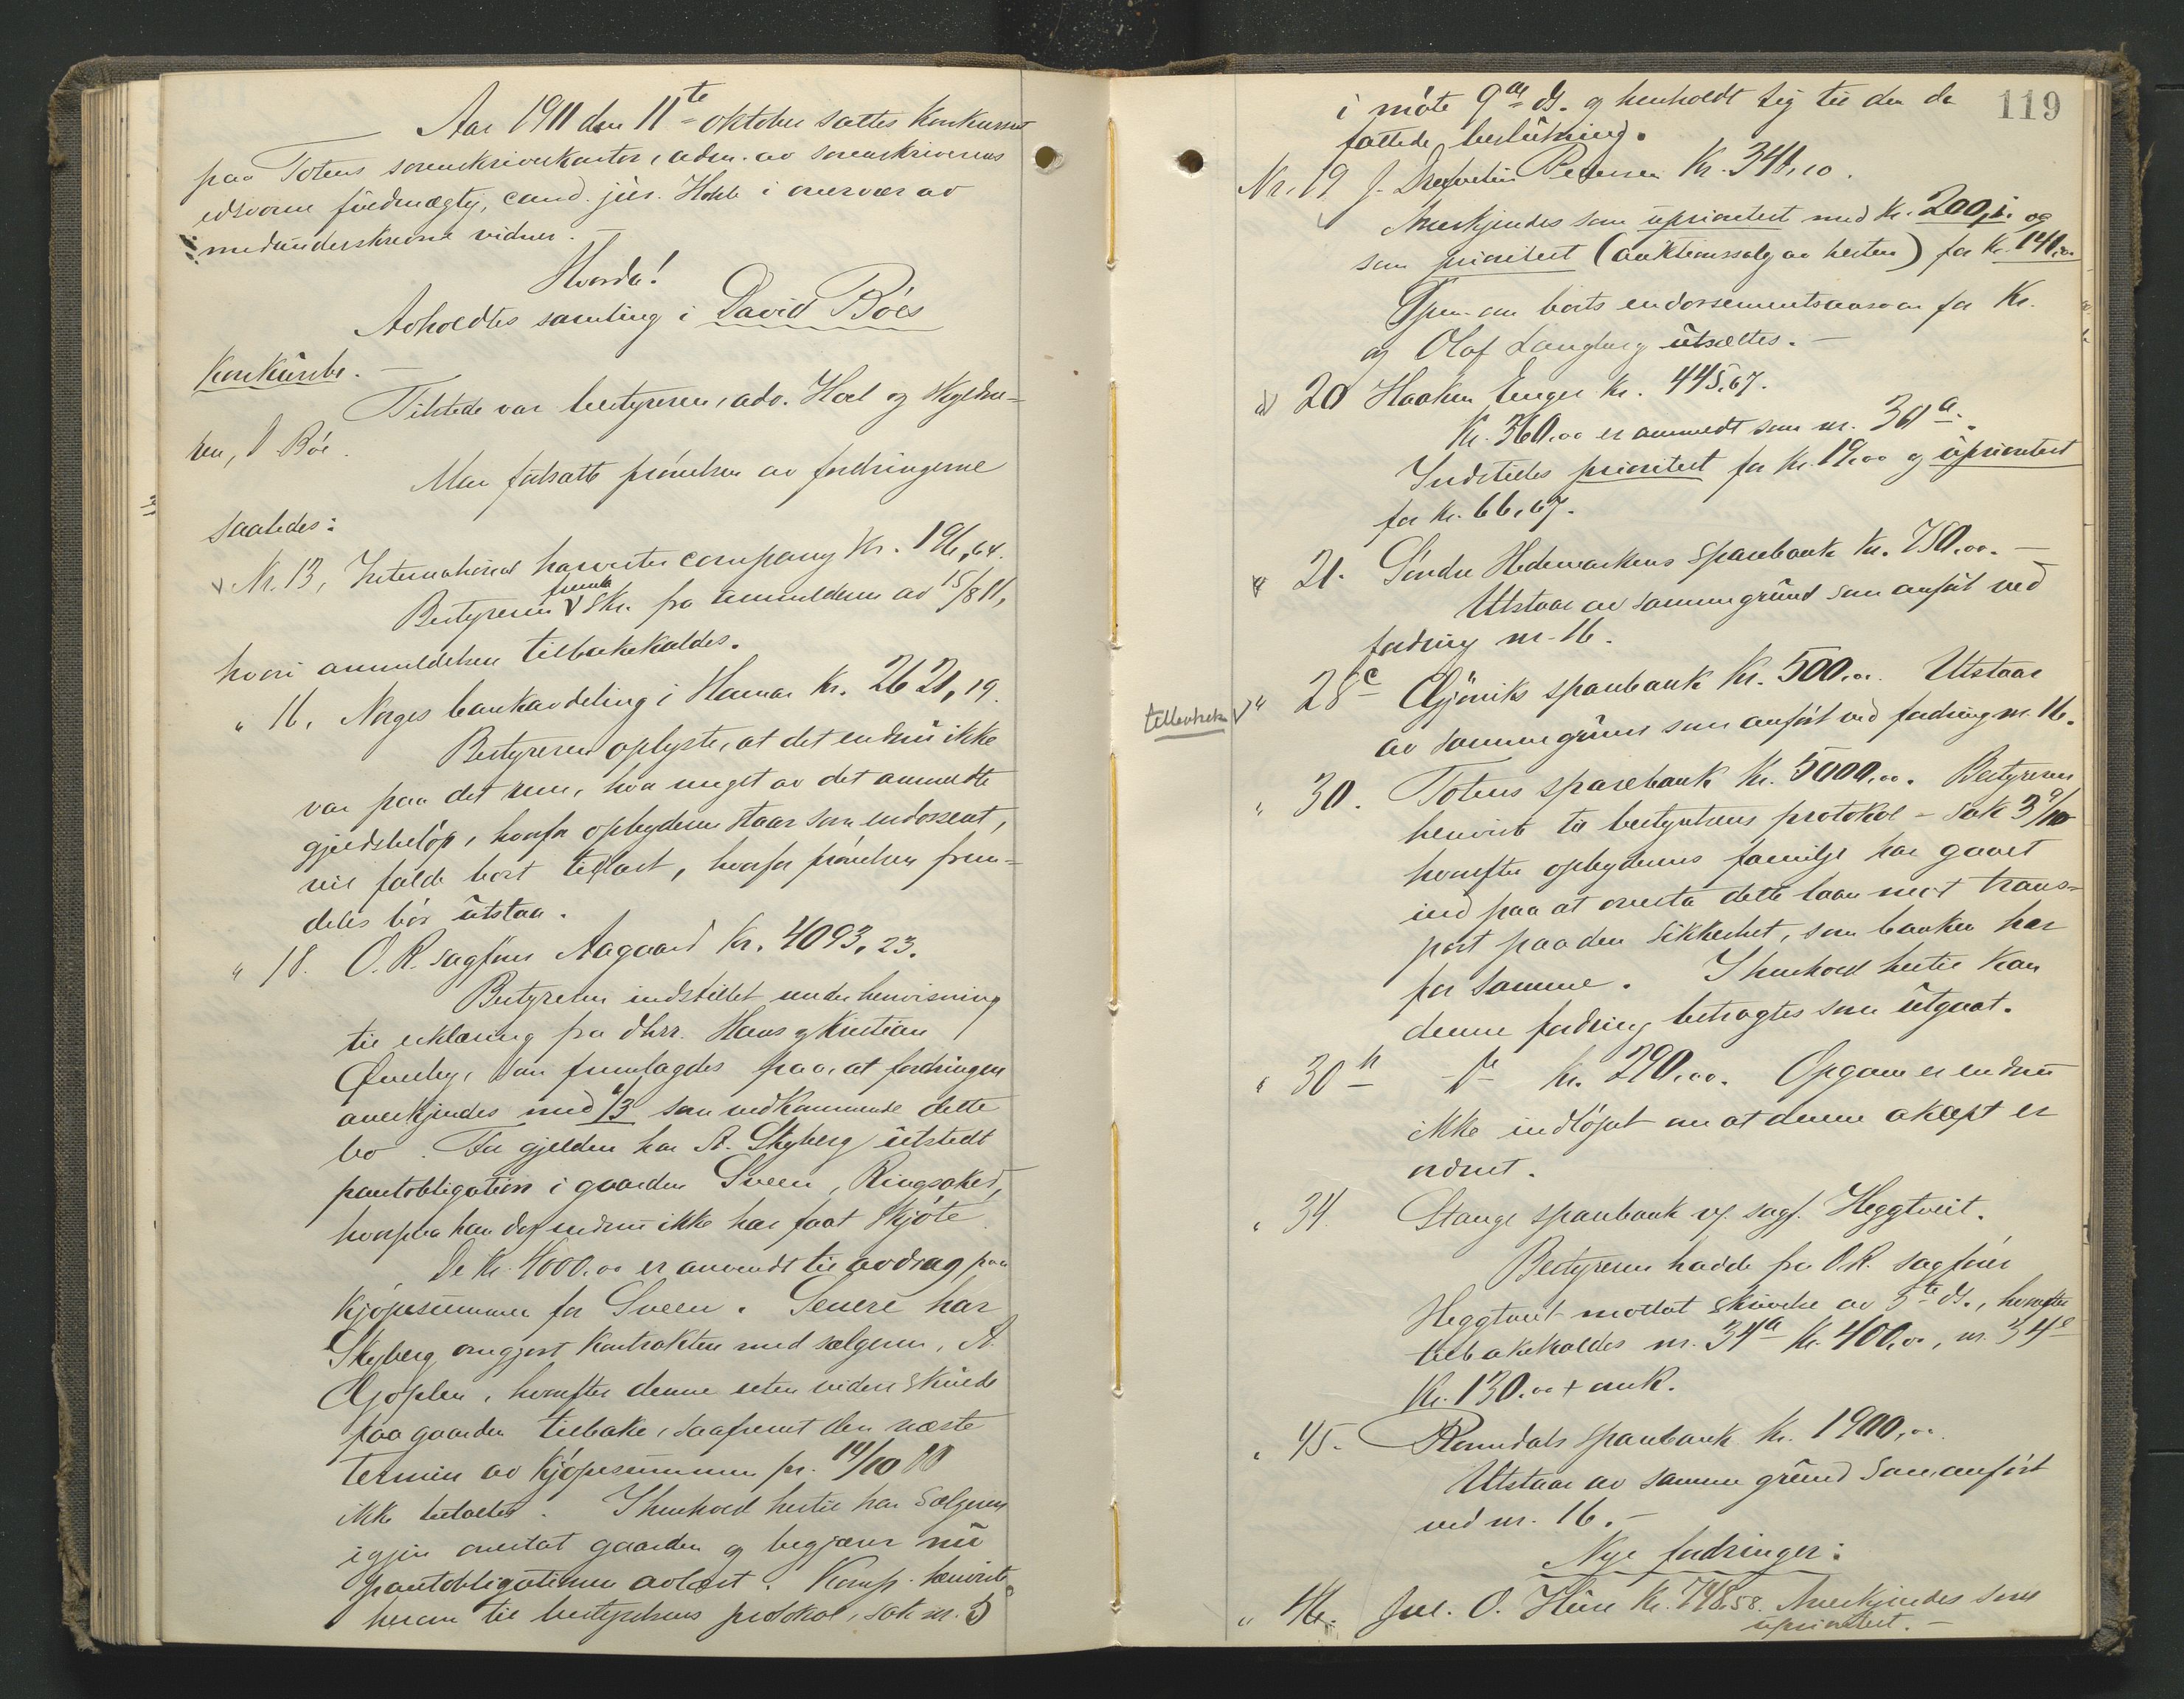 Aar 1911 den 11te oktober sattes konkursret
paa Totens sorenskriverkontor, adm. av sorenskriverens
edsvorne fuldmægtig, cand. jur. Holst i overvær av
medunderskrevne vidner. —
Hvorda!
Avholdtes samling i David Böes
Konkursbo. —
Tilstede var bestyreren, adv. Hoel og skyldne-
ren, D Böe.
Man fortsatte prövelsen av fordringerne
saaledes:
Nr. 13, International harvester company Kr. 196,64.
freml.
Bestyreren V skr. fra anmelderen av 15/8 11,
hvori anmeldelsen tilbakekaldes.
" 16. Norges bankavdeling i Hamar Kr. 2621,19.
Bestyreren oplyste, at det endnu ikke
var paa det rene, hvor meget av det anmeldte
gjeldsbelöp, hvorfor opbyderen staar som endossent,
vil falde bort til last, hvorfor prövelsen frem-
deles bör utstaa.
" 18. O.R. sagförer Aagaard Kr. 4093,23.
Bestyreren indstillet under henvisning
til erklæring fra dhrr. Hans og Kristian
Överby, som fremlagdes paa, at fordringen
anerkjendes med 1/3 som vedkommende dette
bo. For gjelden har A. Skyberg utstedt
pantobligation i gaarden Sveen, Ringsaker,
hvorpaa han dog endnu ikke har faat skjöte.
De Kr. 4000.00 er anvendt til avdrag paa
kjöpesummen for Sveen. Senere har
Skyberg omgjort kontrakten med sælgeren, A.
Gjöplen, hvorefter denne uten videre skulde
faa gaarden tilbake, saafremt den næste
termin av kjöpesummen pr. 14/10 10
ikke betaltes. I henhold hertil har sælgeren
igjen overtat gaarden og begjærer nu
pantobligationen avlæst. Komp. henviste
herom til bestyrelsens protokol, sak nr. 5
119
i möte 9de ds. og henholdt sig til den da
fattede beslutning.
Nr. 19 J. Pedersen Kr. 341,10.
Anerkjendes som uprioritert med Kr. 200,10 og
som prioritert (auktionssalg av hesten) for Kr. 141,00
Spm. om boets endorsementsansvar for Kr.
og Olaf Langberg utsættes. —
" 20 Haakon Enger Kr. 445,67.
Kr. 360.00 er anmeldt som nr. 30 a.
Indstilles prioritert for Kr. 19,00 og uprioritert
for Kr. 66,67.
" 21. Söndre Hedemarkens sparebank Kr. 750,00. —
Utstaar av samme grund som anfört ved
fordring nr. 16.
tilbakek. V " 28c Gjöviks sparebank Kr. 500,00. Utstaar
av samme grund som anfört ved fordring nr. 16.
" 30. Totens sparebank Kr. 5000,00. Bestyreren
henviste til bestyrelsens protokol – sak 3 9/10
hvorefter opbyderens familje har gaaet
ind paa at overta dette laan mot trans-
port paa den sikkerhet, som banken har
for samme. I henhold hertil kan
denne fordring betragtes som utgaat.
" 30h — Kr. 290,00. Opgave er endnu
ikke indlöpet om at denne aksept er
ordnet.
" 34. Stange sparebank v/ sagf. Heggtveit.
Bestyreren hadde fra O.R. sagförer
Heggtveit mottat skrivelse av 5te ds., hvorefter
tilbakekaldes nr. 34a Kr. 400,00, nr. 34e
Kr. 130.00 + omk.
" 45. Romedals sparebank Kr. 1900,00.
Utstaar av samme grund som anfört
ved nr. 16. —
Nye fordringer:
" 46. Jul. O. Kr. 748,58. Anerkjendes som
uprioritert. —